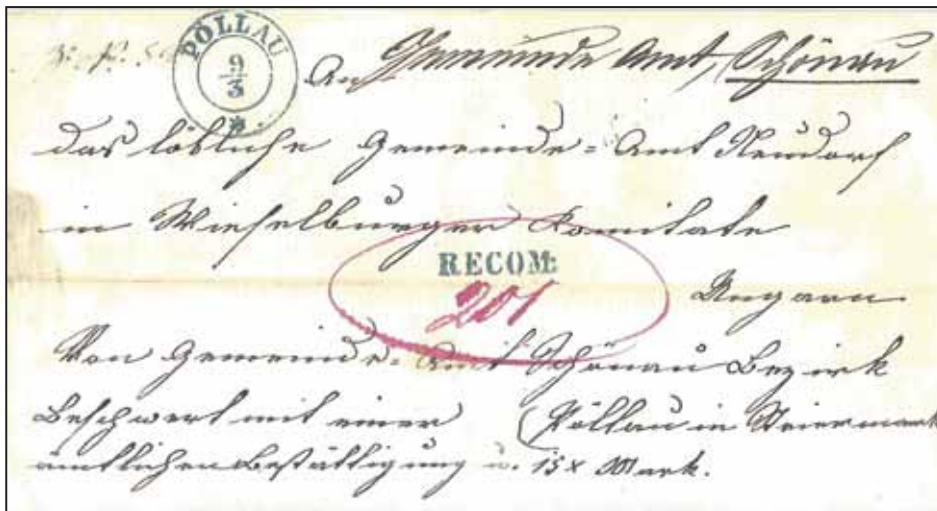 PÖLLAU
9
3
An Gemeinde Amt, Schönau
das löbliche Gemeinde=Amt Neudorf
in Wieselburger Komitate
RECOM:
201
Ungarn
Von Gemeinde=Amt Schönau Bezirk
Beschwert mit einer (Pöllau in Steiermark
ämtlichen Bestättigung u. 15 x Mark.